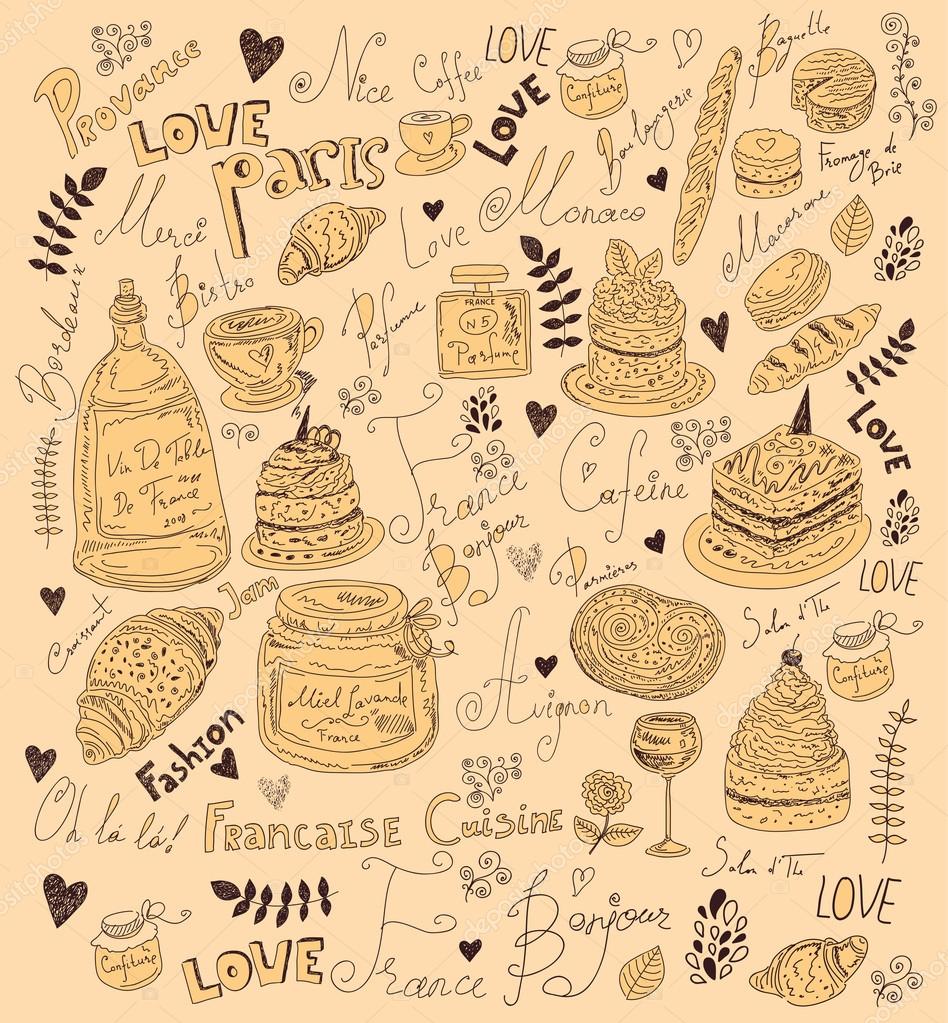 Provance
Nice
Coffee
LOVE
Confiture
Baguette
LOVE
Paris
LOVE
Boulangerie
Fromage de
Brie
Merci
Love
Monaco
Macarone
Bordeaux
Bistro
Parfeume
FRANCE
N5
Parfume
Vin De Table
De France
2009
France
Cafeine
LOVE
Bonjour
Parmieres
LOVE
Croissant
Jam
Miel Lavande
France
Avignon
Salon d'The
Confiture
Fashion
Oh la la!
Francaise Cuisine
Salon d'The
Confiture
LOVE
France
Bonjour
LOVE